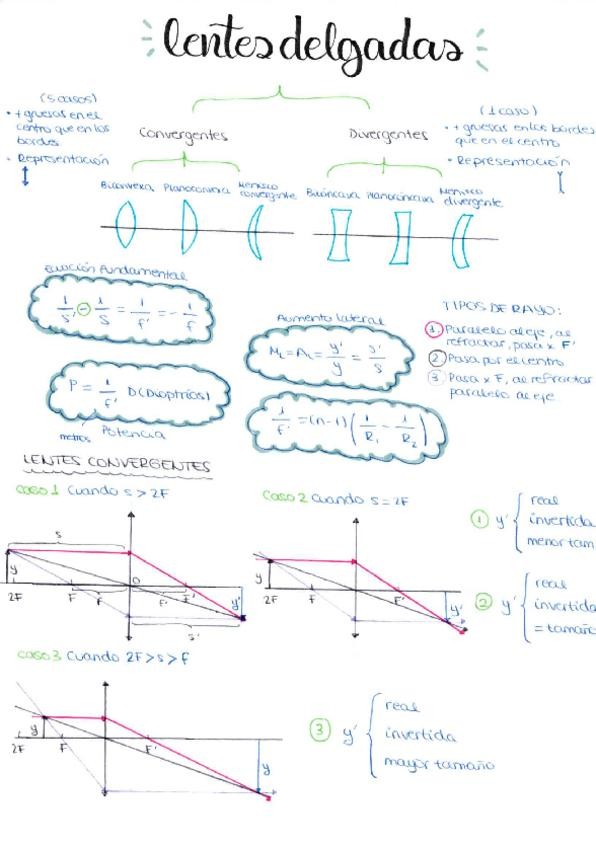 lentes delgadas
(5 casos)
• + gruesas en el
centro que en los
bordes
• Representación
Convergentes
Divergentes
(1 caso)
• + gruesas en los bordes
que en el centro
• Representación
Biconvexa Planoconvexa Menisco
convergente
Bicóncava Planocóncava Menisco
divergente
Ecuación Fundamental
1/s' - 1/s = 1/f' = - 1/f
Aumento lateral
M_L = A_L = y'/y = s'/s
TIPOS DE RAYO:
1. Paralelo al eje, al
refractar, pasa x F'
2. Pasa por el centro
3. Pasa x F, al refractar
paralelo al eje
P = 1/f' D (Dioptrías)
metros Potencia
1/f' = (n-1) (1/R₁ - 1/R₂)
LENTES CONVERGENTES
caso 1 Cuando s > 2F
caso 2 Cuando s = 2F
s
y
2F F f O F' F' y'
s'
y
2F F F' y'
1 y' { real
invertida
menor tam
2 y' { real
invertida
= tamaño
caso 3 Cuando 2F > s > f
y
2F F F' y
3 y' { real
invertida
mayor tamaño